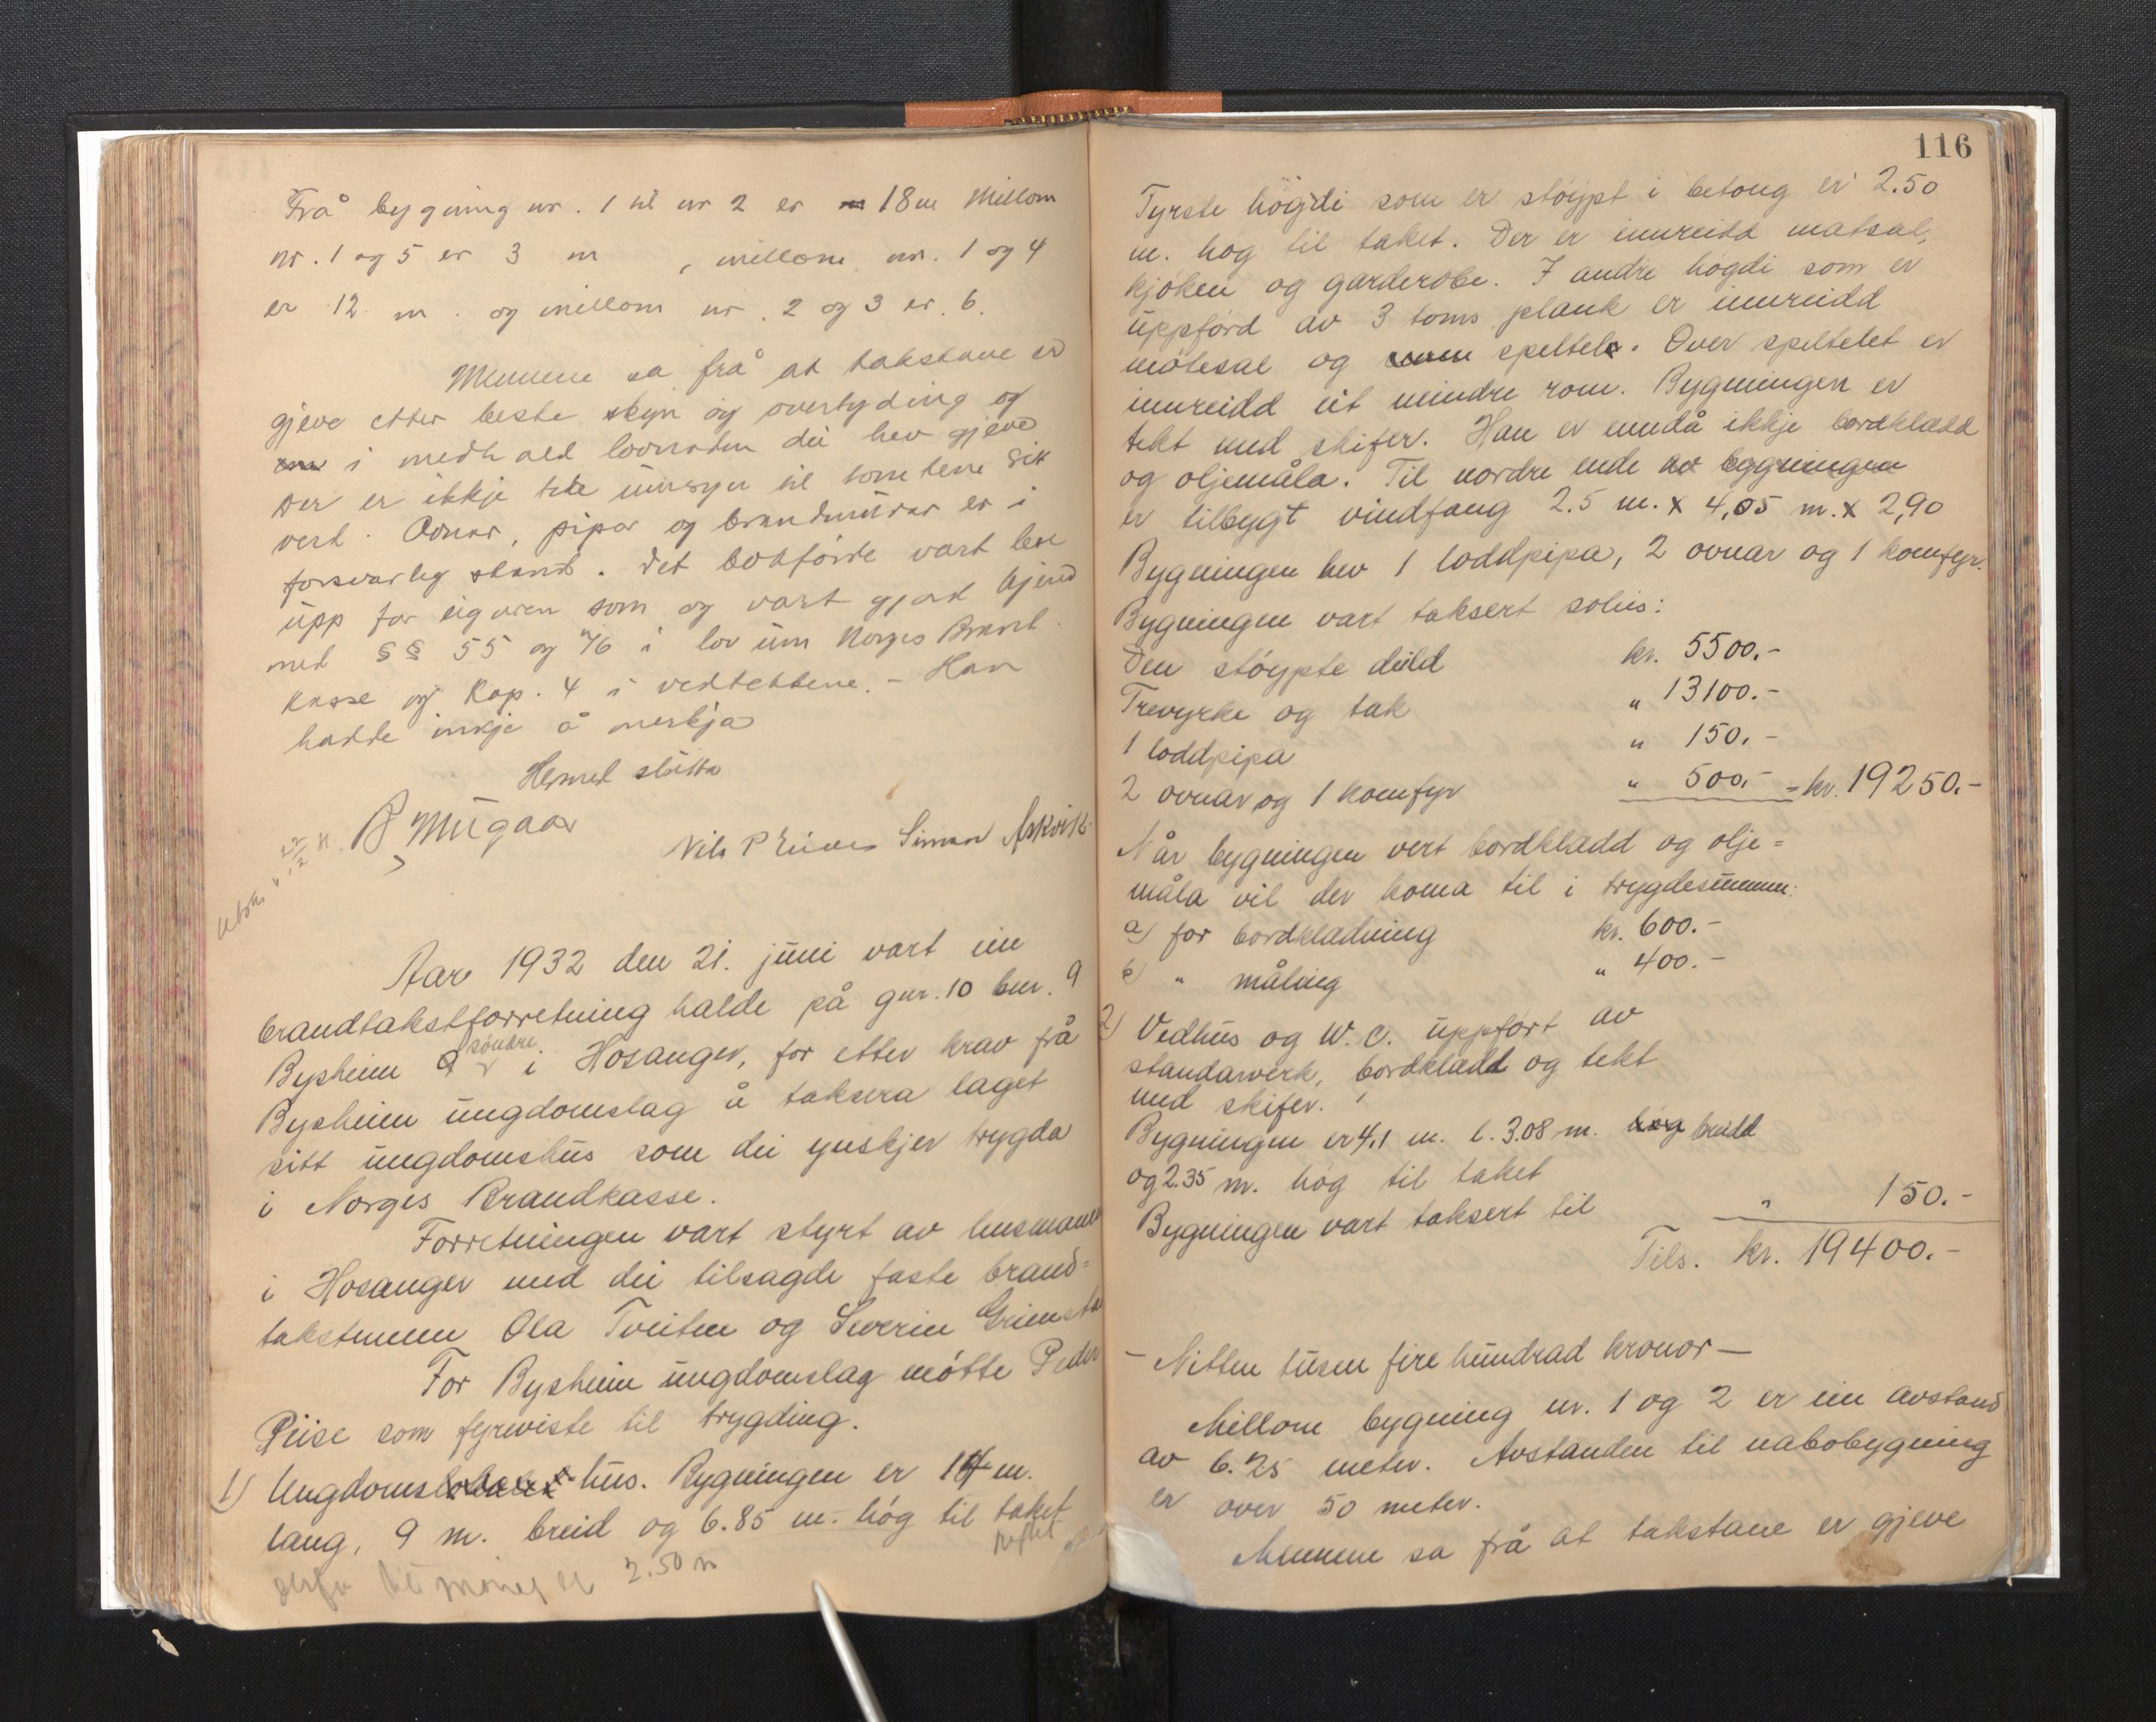 Frå bygning nr. 1 til nr 2 er 18 m Millom
nr. 1 og 5 er 3 m , millom nr. 1 og 4
er 12. m. og millom nr. 2 og 3 er 6.
Mennene sa frå at takstane er
gjeve etter beste skyn og overtyding og
i medhald lovnaden dei hev gjeve
Der er ikkje teke umsyn til tomtene sitt
verd. Ovnar, pipor og brandmurar er i
forsvarleg stand. Det bokførde vart lese
upp for eigaren som og vart gjord kjend
med §§ 55 og 76 i lov um Norges Brand
kasse og Kap. 4 i vedtektene. - Han
hadde inkje å merkja
Hermed slutta
B Mügaas
Nils P Simon Askvik.
Aar 1932 den 21. juni vart ein
brandtakstforretning halde på gnr. 10 bnr. 9
Bysheim søndre i Hosanger, for etter krav frå
Bysheim ungdomslag å taksera laget
sitt ungdomshus som dei ynskjer trygda
i Norges Brandkasse.
Forretningen vart styrt av lensmannen
i Hosanger med dei tilsagde faste brand=
takstmenn Ola Tveiten og Severin Grimstad
For Bysheim ungdomslag møtte Peder
som fyreviste til trygding.
1) Ungdoms hus. Bygningen er 14 m.
lang, 9 m. breid og 6.85 m. høg til taket
til møner er 2.50 m
116
Fyrste høgdi som er støypt i betong er 2.50
m. høg til taket. Der er innreidd matsal,
kjøken og garderobe. I andre høgdi som er
uppførd av 3 toms plank er innreidd
møtesal og speltele. Over speltelet er
innreidd eit mindre rom. Bygningen er
tekt med skifer. Han er enndå ikkje bordklædd
og oljemåla. Til nordre ende av bygningen
er tilbygt vindfang 2.5 m. x 4,05 m. x 2,90
Bygningen hev 1 loddpipa, 2 ovnar og 1 komfyr.
Bygningen vart taksert soleis:
Den støypte deild kr. 5500.-
Trevyrke og tak " 13100.-
1 loddpipa " 150.-
2 ovnar og 1 komfyr " 500.- = kr. 19250.-
Når bygningen vert bordklædd og olje=
måla vil der koma til i trygdesummen:
a) for bordklædning kr. 600.-
b) " måling " 400.-
2) Vedhus og W.C. uppført av
standarverk, bordklædd og tekt
med skifer.
Bygningen er 4,1 m. l. 3.08 m. høg breidd
og 2.35 m. høg til taket
Bygningen vart taksert til " 150.-
Tils. kr. 19400.-
- Nitten tusen fire hundrad kronor -
Millom bygning nr. 1 og 2 er ein avstand
av 6.25 meter. Avstanden til nabobygning
er over 50 meter.
Mennene sa frå at takstane er gjeve